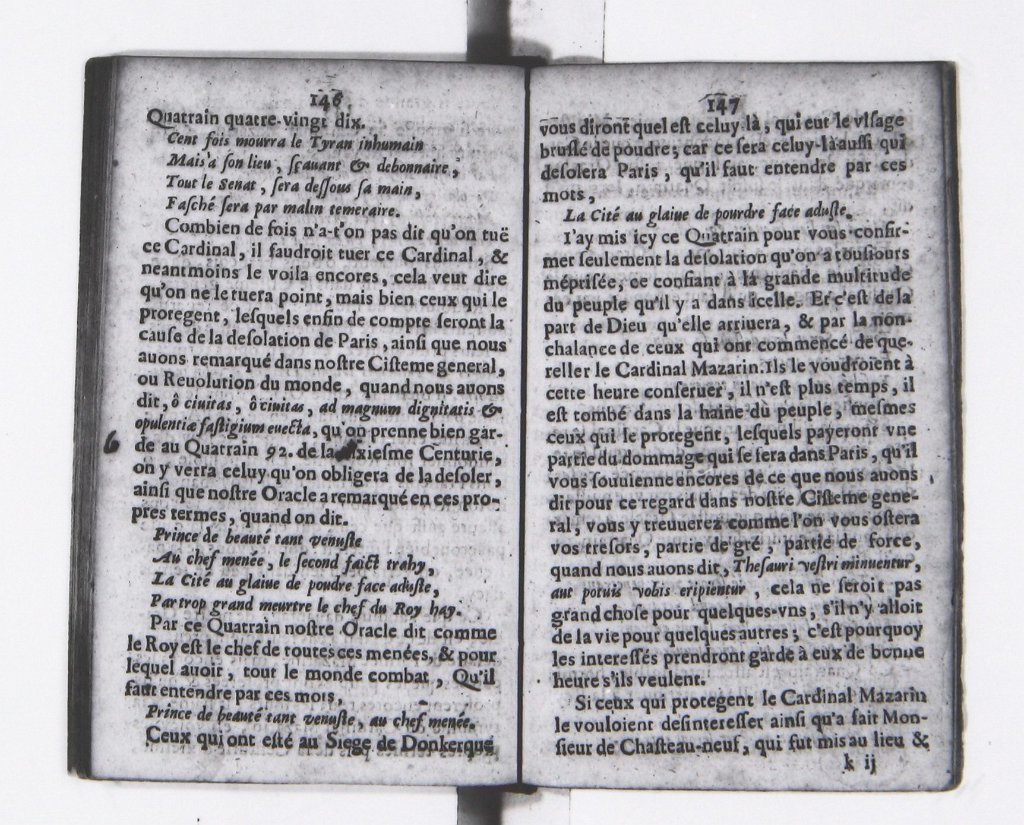 146
Quatrain quatre-vingt dix.
Cent fois mourra le Tyran inhumain
Mais a son lieu, sçauant & debonnaire,
Tout le Senat, sera dessous sa main,
Fasché sera par malin temeraire.
Combien de fois n'a-t'on pas dit qu'on tuë
ce Cardinal, il faudroit tuer ce Cardinal, &
neantmoins le voila encores, cela veut dire
qu'on ne le tuera point, mais bien ceux qui le
protegent, lesquels enfin de compte seront la
cause de la desolation de Paris, ainsi que nous
auons remarqué dans nostre Cisteme general,
ou Reuolution du monde, quand nous auons
dit, ô ciuitas, ô ciuitas, ad magnum dignitatis &
opulentiæ fastigium euecta, qu'on prenne bien gar-
6
de au Quatrain 92. de la sixiesme Centurie,
on y verra celuy qu'on obligera de la desoler,
ainsi que nostre Oracle a remarqué en ces pro-
pres termes, quand on dit.
Prince de beauté tant venuste
Au chef menée, le second faict trahy,
La Cité au glaiue de poudre face aduste,
Par trop grand meurtre le chef du Roy hay.
Par ce Quatrain nostre Oracle dit comme
le Roy est le chef de toutes ces menées, & pour
lequel auoir, tout le monde combat, Qu'il
faut entendre par ces mots,
Prince de beauté tant venuste, au chef menée.
Ceux qui ont esté au Siege de Donkerque
147
vous diront quel est celuy là, qui eut le visage
bruslé de poudre; car ce sera celuy-là aussi qui
desolera Paris, qu'il faut entendre par ces
mots,
La Cité au glaiue de pourdre face aduste.
I'ay mis icy ce Quatrain pour vous confir-
mer seulement la desolation qu'on a tousiours
méprisée, ce confiant à la grande multitude
du peuple qu'il y a dans icelle. Et c'est de la
part de Dieu qu'elle arriuera, & par la non-
chalance de ceux qui ont commencé de que-
reller le Cardinal Mazarin. Ils le voudroient à
cette heure conseruer, il n'est plus temps, il
est tombé dans la haine du peuple, mesmes
ceux qui le protegent, lesquels payeront vne
partie du dommage qui se sera dans Paris, qu'il
vous souuienne encores de ce que nous auons
dit pour ce regard dans nostre Cisteme gene-
ral, vous y treuuerez comme l'on vous ostera
vos tresors, partie de gré, partie de force,
quand nous auons dit, Thesauri vestri minuentur,
aut potuis vobis eripientur, cela ne seroit pas
grand chose pour quelques-vns, s'il n'y alloit
de la vie pour quelques autres; c'est pourquoy
les interessés prendront garde à eux de bonne
heure s'ils veulent.
Si ceux qui protegent le Cardinal Mazarin
le vouloient desinteresser ainsi qu'a fait Mon-
sieur de Chasteau-neuf, qui fut mis au lieu &
k ij